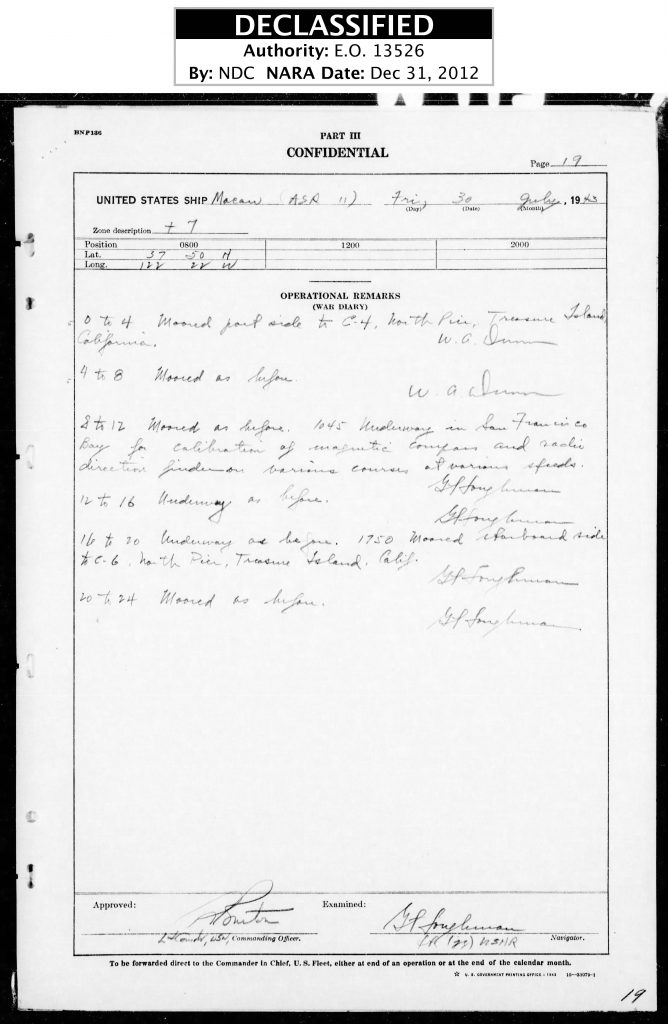 DECLASSIFIED
Authority: E.O. 13526
By: NDC NARA Date: Dec 31, 2012
BNP136
PART III
CONFIDENTIAL
Page 19
UNITED STATES SHIP Macaw (ASR 11) Fri, 30 July, 1943
(Day) (Date) (Month)
Zone description + 7
Position 0800 1200 2000
Lat. 37 50 N
Long. 122 22 W
OPERATIONAL REMARKS
(WAR DIARY)
0 to 4 Moored port side to C-4, North Pier, Treasure Island,
California. W. A. Dunn
4 to 8 Moored as before.
W. A. Dunn
8 to 12 Moored as before. 1045 Underway in San Francisco
Bay for calibration of magnetic compass and radio
direction finder on various courses at various speeds.
G F Loughman
12 to 16 Underway as before.
G F Loughman
16 to 20 Underway as before. 1750 Moored starboard side
to C-6, North Pier, Treasure Island, Calif.
G F Loughman
20 to 24 Moored as before.
G F Loughman
Approved: Examined:
G F Loughman
Lt Comdr, USN, Commanding Officer. USNR Navigator.
To be forwarded direct to the Commander in Chief, U. S. Fleet, either at end of an operation or at the end of the calendar month.
☆ U. S. GOVERNMENT PRINTING OFFICE : 1943
19